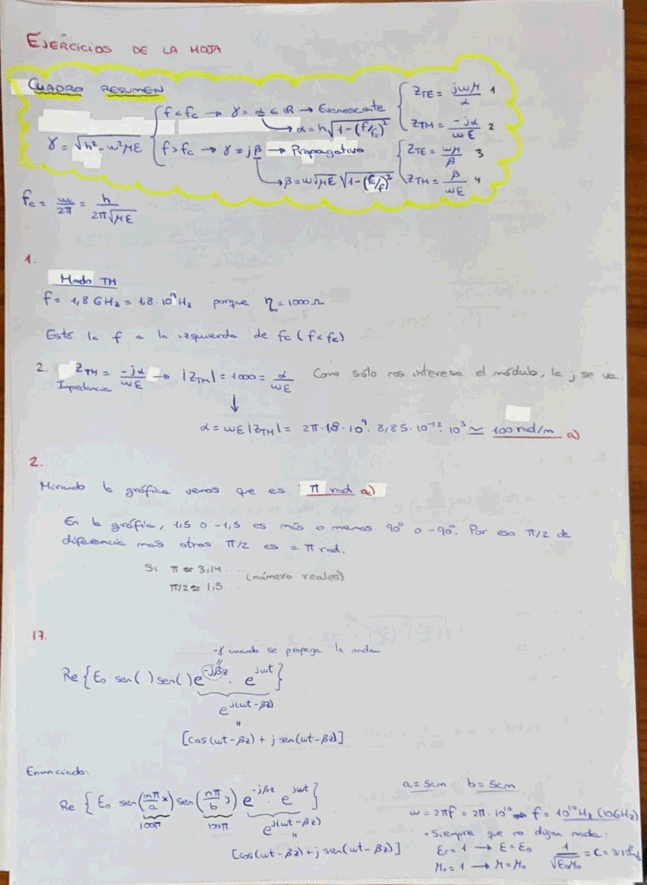 EJERCICIOS DE LA HOJA
CUADRO RESUMEN
γ = √(h² - ω²με)
f < fc → γ = α ∈ ℝ → Evanescente
→ α = h√(1-(f/fc)²)
Z_TE = jωμ/α 1
Z_TM = -jα/ωε 2
f > fc → γ = jβ → Propagativo
→ β = ω√με √(1-(fc/f)²)
Z_TE = ωμ/β 3
Z_TM = β/ωε 4
fc = ωc/2π = h/2π√με
1.
Modo TM
f = 1,8 GHz = 1,8·10⁹ Hz porque η = 1000 Ω
Está la f a la izquierda de fc (f < fc)
2. Z_TM = -jα/ωε → |Z_TM| = 1000 = α/ωε Como sólo nos interesa el módulo, la j se va.
Impedancia
α = ωε|Z_TM| = 2π·1,8·10⁹·8,85·10⁻¹²·10³ ≃ 100 rad/m a)
2.
Mirando la gráfica vemos que es π rad a)
En la gráfica, 1,5 o -1,5 es más o menos 90° o -90°. Por eso π/2 de
diferencia mas otros π/2 es = π rad.
Si π ≈ 3,14...
π/2 ≈ 1,5... (número reales)
17.
-γ cuando se propaga la onda
Re{E₀ sen( ) sen( ) e^(-jβz) · e^(jωt)}
e^(j(ωt-βz))
[cos(ωt-βz) + j sen(ωt-βz)]
Enunciado:
Re{E₀ sen(mπ/a x) sen(nπ/b y) e^(-jβz) · e^(jωt)}
100π 100π e^(j(ωt-βz))
[cos(ωt-βz) + j sen(ωt-βz)]
a = 5cm b = 5cm
ω = 2πf = 2π·10¹⁰ → f = 10¹⁰ Hz (10GHz)
· Siempre que no digan nada:
εr = 1 → ε = ε₀
μr = 1 → μ = μ₀
1/√ε₀μ₀ = c = 3·10⁸